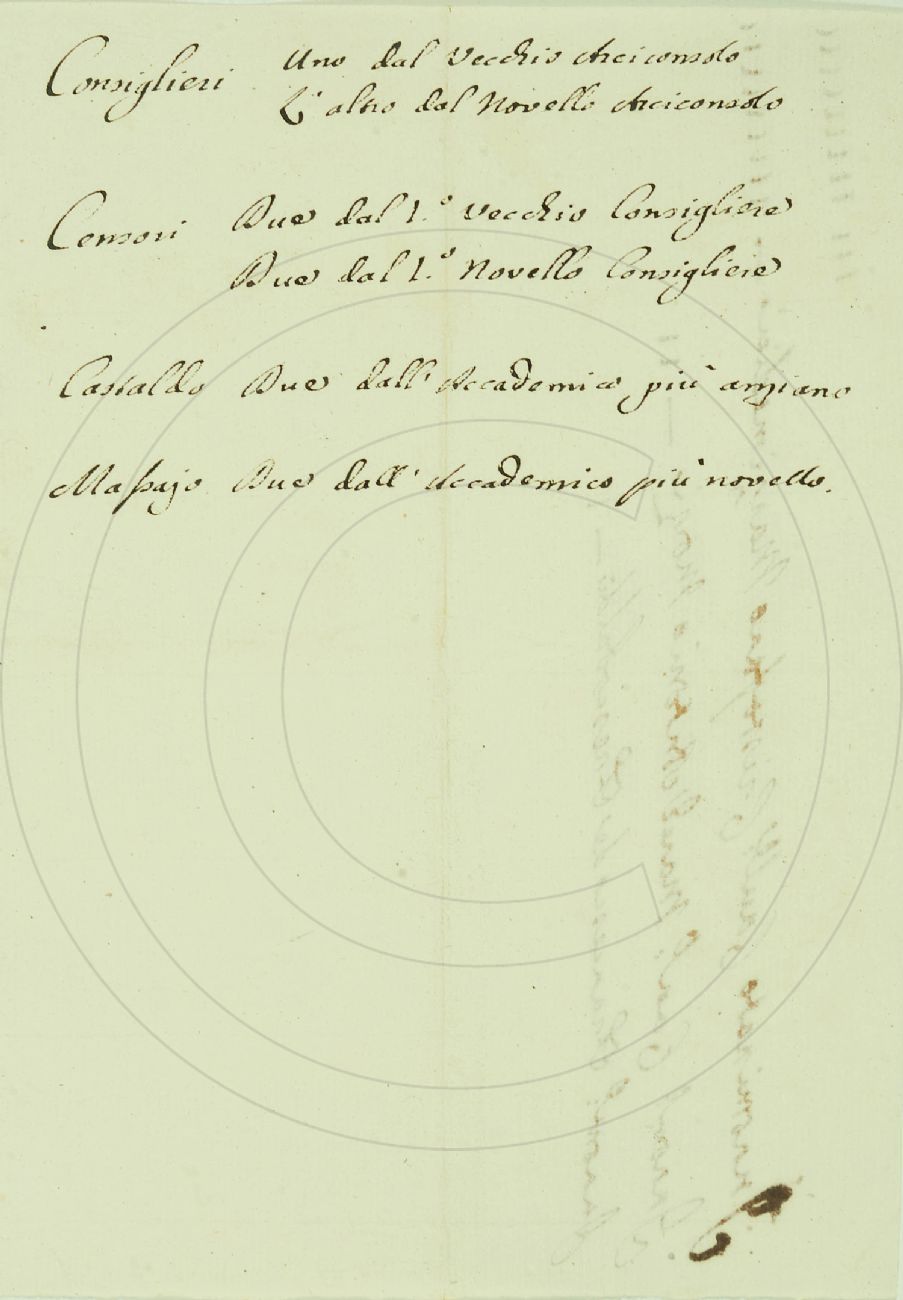 Consiglieri Uno dal Vecchio Arciconsolo
L'altro dal Novello Arciconsolo
Censori Due dal 1.° Vecchio Consigliere
Due dal 1.° Novello Consigliere
Castaldo Due dall'Accademico più anziano
Massajo Due dall'Accademico più novello.